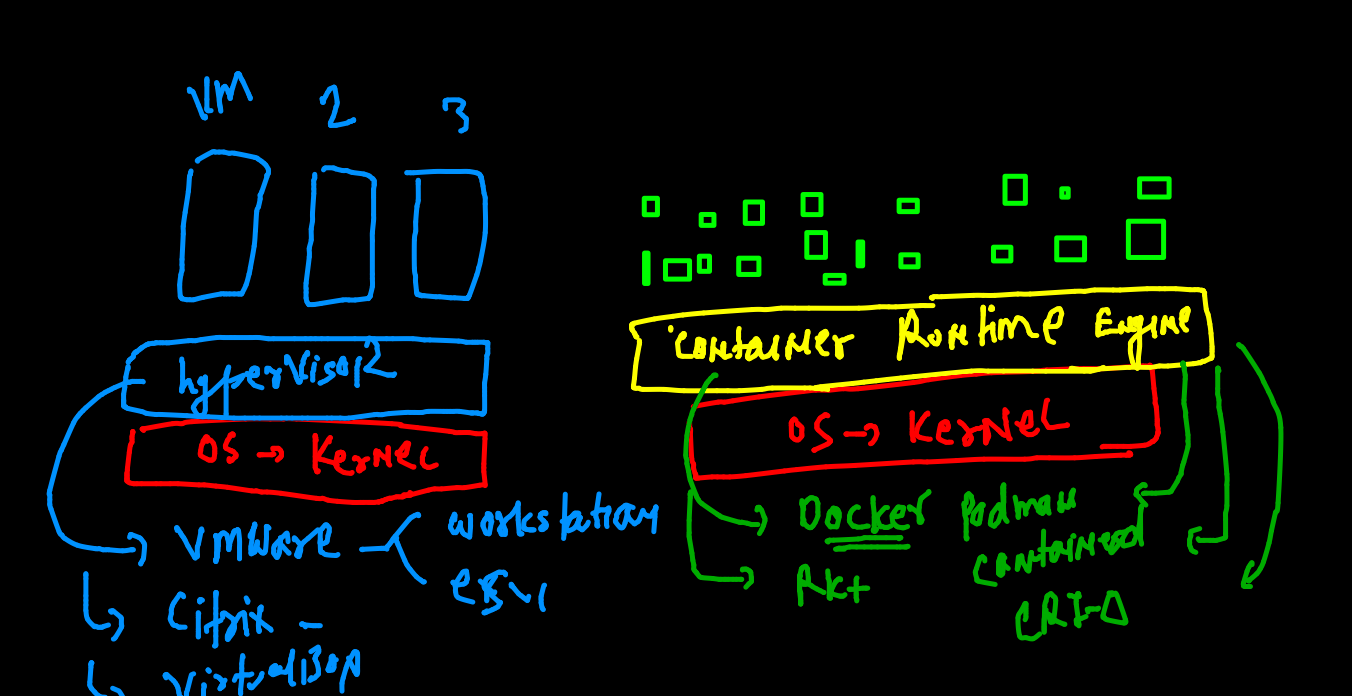 VM 2 3
hypervisor
OS → Kernel
VMWare
workstation
esxi
Citrix -
Container Runtime Engine
OS → Kernel
Docker
Podman
Rkt
containerd
CRI-O